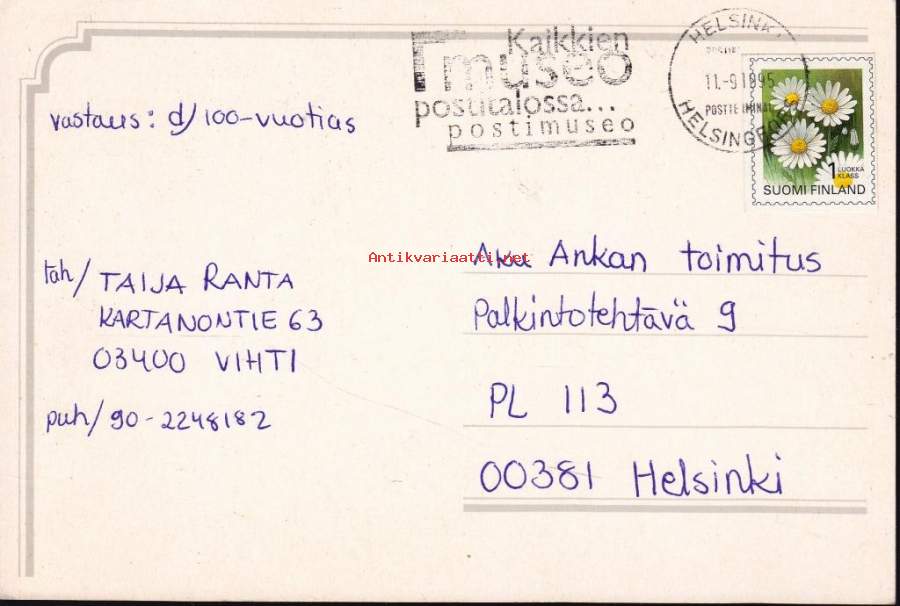 Kaikkien
museo
postitalossa...
postimuseo
HELSINKI
11.-9.1995
HELSINGFORS
1 LUOKKA
KLASS
SUOMI FINLAND
vastaus: d/100-vuotias
täh/ TAIJA RANTA
KARTANONTIE 63
03400 VIHTI
puh/ 90-2248182
Antikvariaatti.net
Aku Ankan toimitus
Palkintotehtävä 9
PL 113
00381 Helsinki